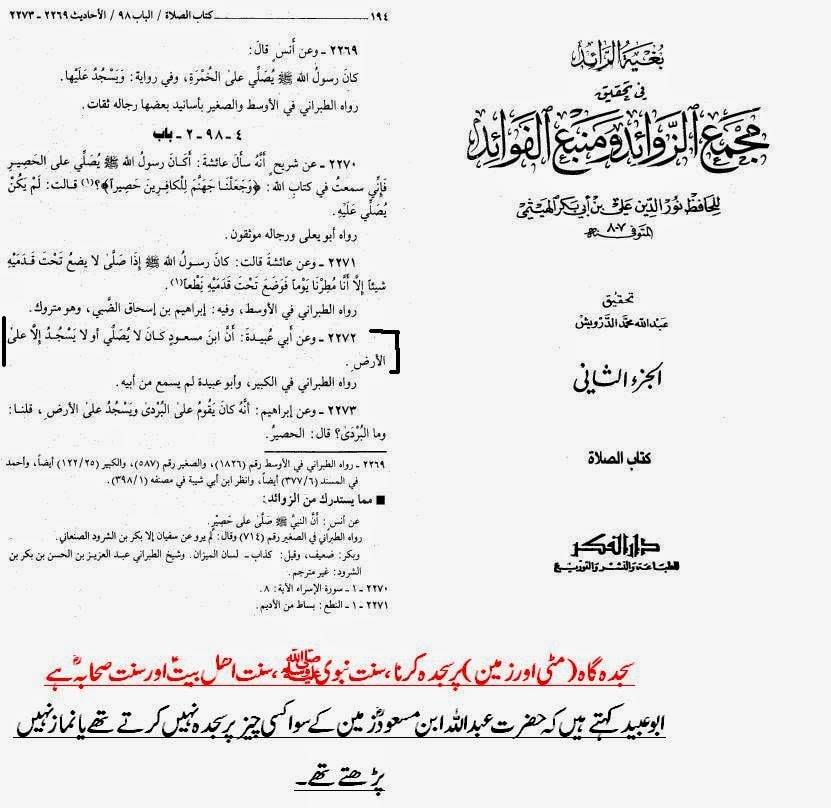 ١٩٤ كتاب الصلاة / الباب ٩٨ / الأحاديث ٢٢٦٩ - ٢٢٧٣
٢٢٦٩ - وعن أنس قال:
كانَ رسولُ الله ﷺ يُصَلِّي على الخُمْرَةِ، وفي رواية: وَيَسْجُدُ عَلَيْها.
رواه الطبراني في الأوسط والصغير بأسانيد بعضها رجاله ثقات.
٤ - ٩٨ - ٢ - باب
٢٢٧٠ - عن شريحٍ أنَّهُ سألَ عائشةَ: أَكَانَ رسولُ الله ﷺ يُصَلِّي على الحَصِيرِ
فَإِنِّي سمعتُ في كتابِ اللهِ: ﴿وَجَعَلْنَا جَهَنَّمَ لِلْكافِرِينَ حَصِيراً﴾؟(١) قالت: لَمْ يَكُنْ
يُصَلِّي عَلَيْهِ.
رواه أبو يعلى ورجاله موثقون.
٢٢٧١ - وعن عائشةَ قالت: كانَ رسولُ الله ﷺ إذا صَلَّى لا يضعُ تَحْتَ قدَمَيْهِ
شيئاً إلَّا أنَّا مُطِرْنَا يَوْماً فَوَضَعَ تَحْتَ قَدَمَيْهِ نِطْعاً(١).
رواه الطبراني في الأوسط، وفيه: إبراهيم بن إسحاق الضَّبي، وهو متروك.
٢٢٧٢ - وعن أبي عُبيدةَ: أنَّ ابنَ مسعودٍ كانَ لا يُصَلِّي أو لا يَسْجُدُ إلَّا على
الأرضِ.
رواه الطبراني في الكبير، وأبو عبيدة لم يسمع من أبيه.
٢٢٧٣ - وعن إبراهيم: أنَّهُ كانَ يَقُومُ على البُرْدىٰ ويَسْجُدُ على الأرضِ، قلنـا:
وما البُرْدَىٰ؟ قال: الحصيرُ.
٢٢٦٩ - رواه الطبراني في الأوسط رقم (١٨٢٦)، والصغير رقم (٥٨٧)، والكبير (١٢٢/٢٥) أيضاً، وأحمد
في المسند (٣٧٧/٦) أيضاً، وانظر ابن أبي شيبة في مصنفه (٣٩٨/١).
■ مما يستدرك من الزوائد:
عن أنس: أنَّ النبيَّ ﷺ صَلَّى على حَصِيرٍ.
رواه الطبراني في الصغير رقم (٧١٤) وقال: لم يرو عن سفيان إلا بكر بن الشرود الصنعاني.
وبكر: ضعيف، وقيل: كذاب - لسان الميزان. وشيخ الطبراني عبد العزيز بن الحسن بن بكر بن
الشرود: غير مترجم.
٢٢٧٠ - ١ - سورة الإسراء الآية: ٨.
٢٢٧١ - ١ - النطع: بساط من الأديم.
بغية الرائد
في تحقيق
مجمع الزوائد ومنبع الفوائد
للحافظ نور الدين علي بن أبي بكر الهيثمي
المتوفى سنة ٨٠٧ هـ
تحقيق
عبد الله محمد الدرويش
الجزء الثاني
كتاب الصلاة
دار الفكر
للطباعة والنشر والتوزيع
سجدہ گاہ (مٹی اور زمین) پر سجدہ کرنا، سنت نبوی ﷺ، سنت اھل بیتؑ اور سنت صحابہؓ ہے
ابوعبید کہتے ہیں کہ حضرت عبداللہ ابن مسعودؓ زمین کے سوا کسی چیز پر سجدہ نہیں کرتے تھے یا نماز نہیں
پڑھتے تھے۔